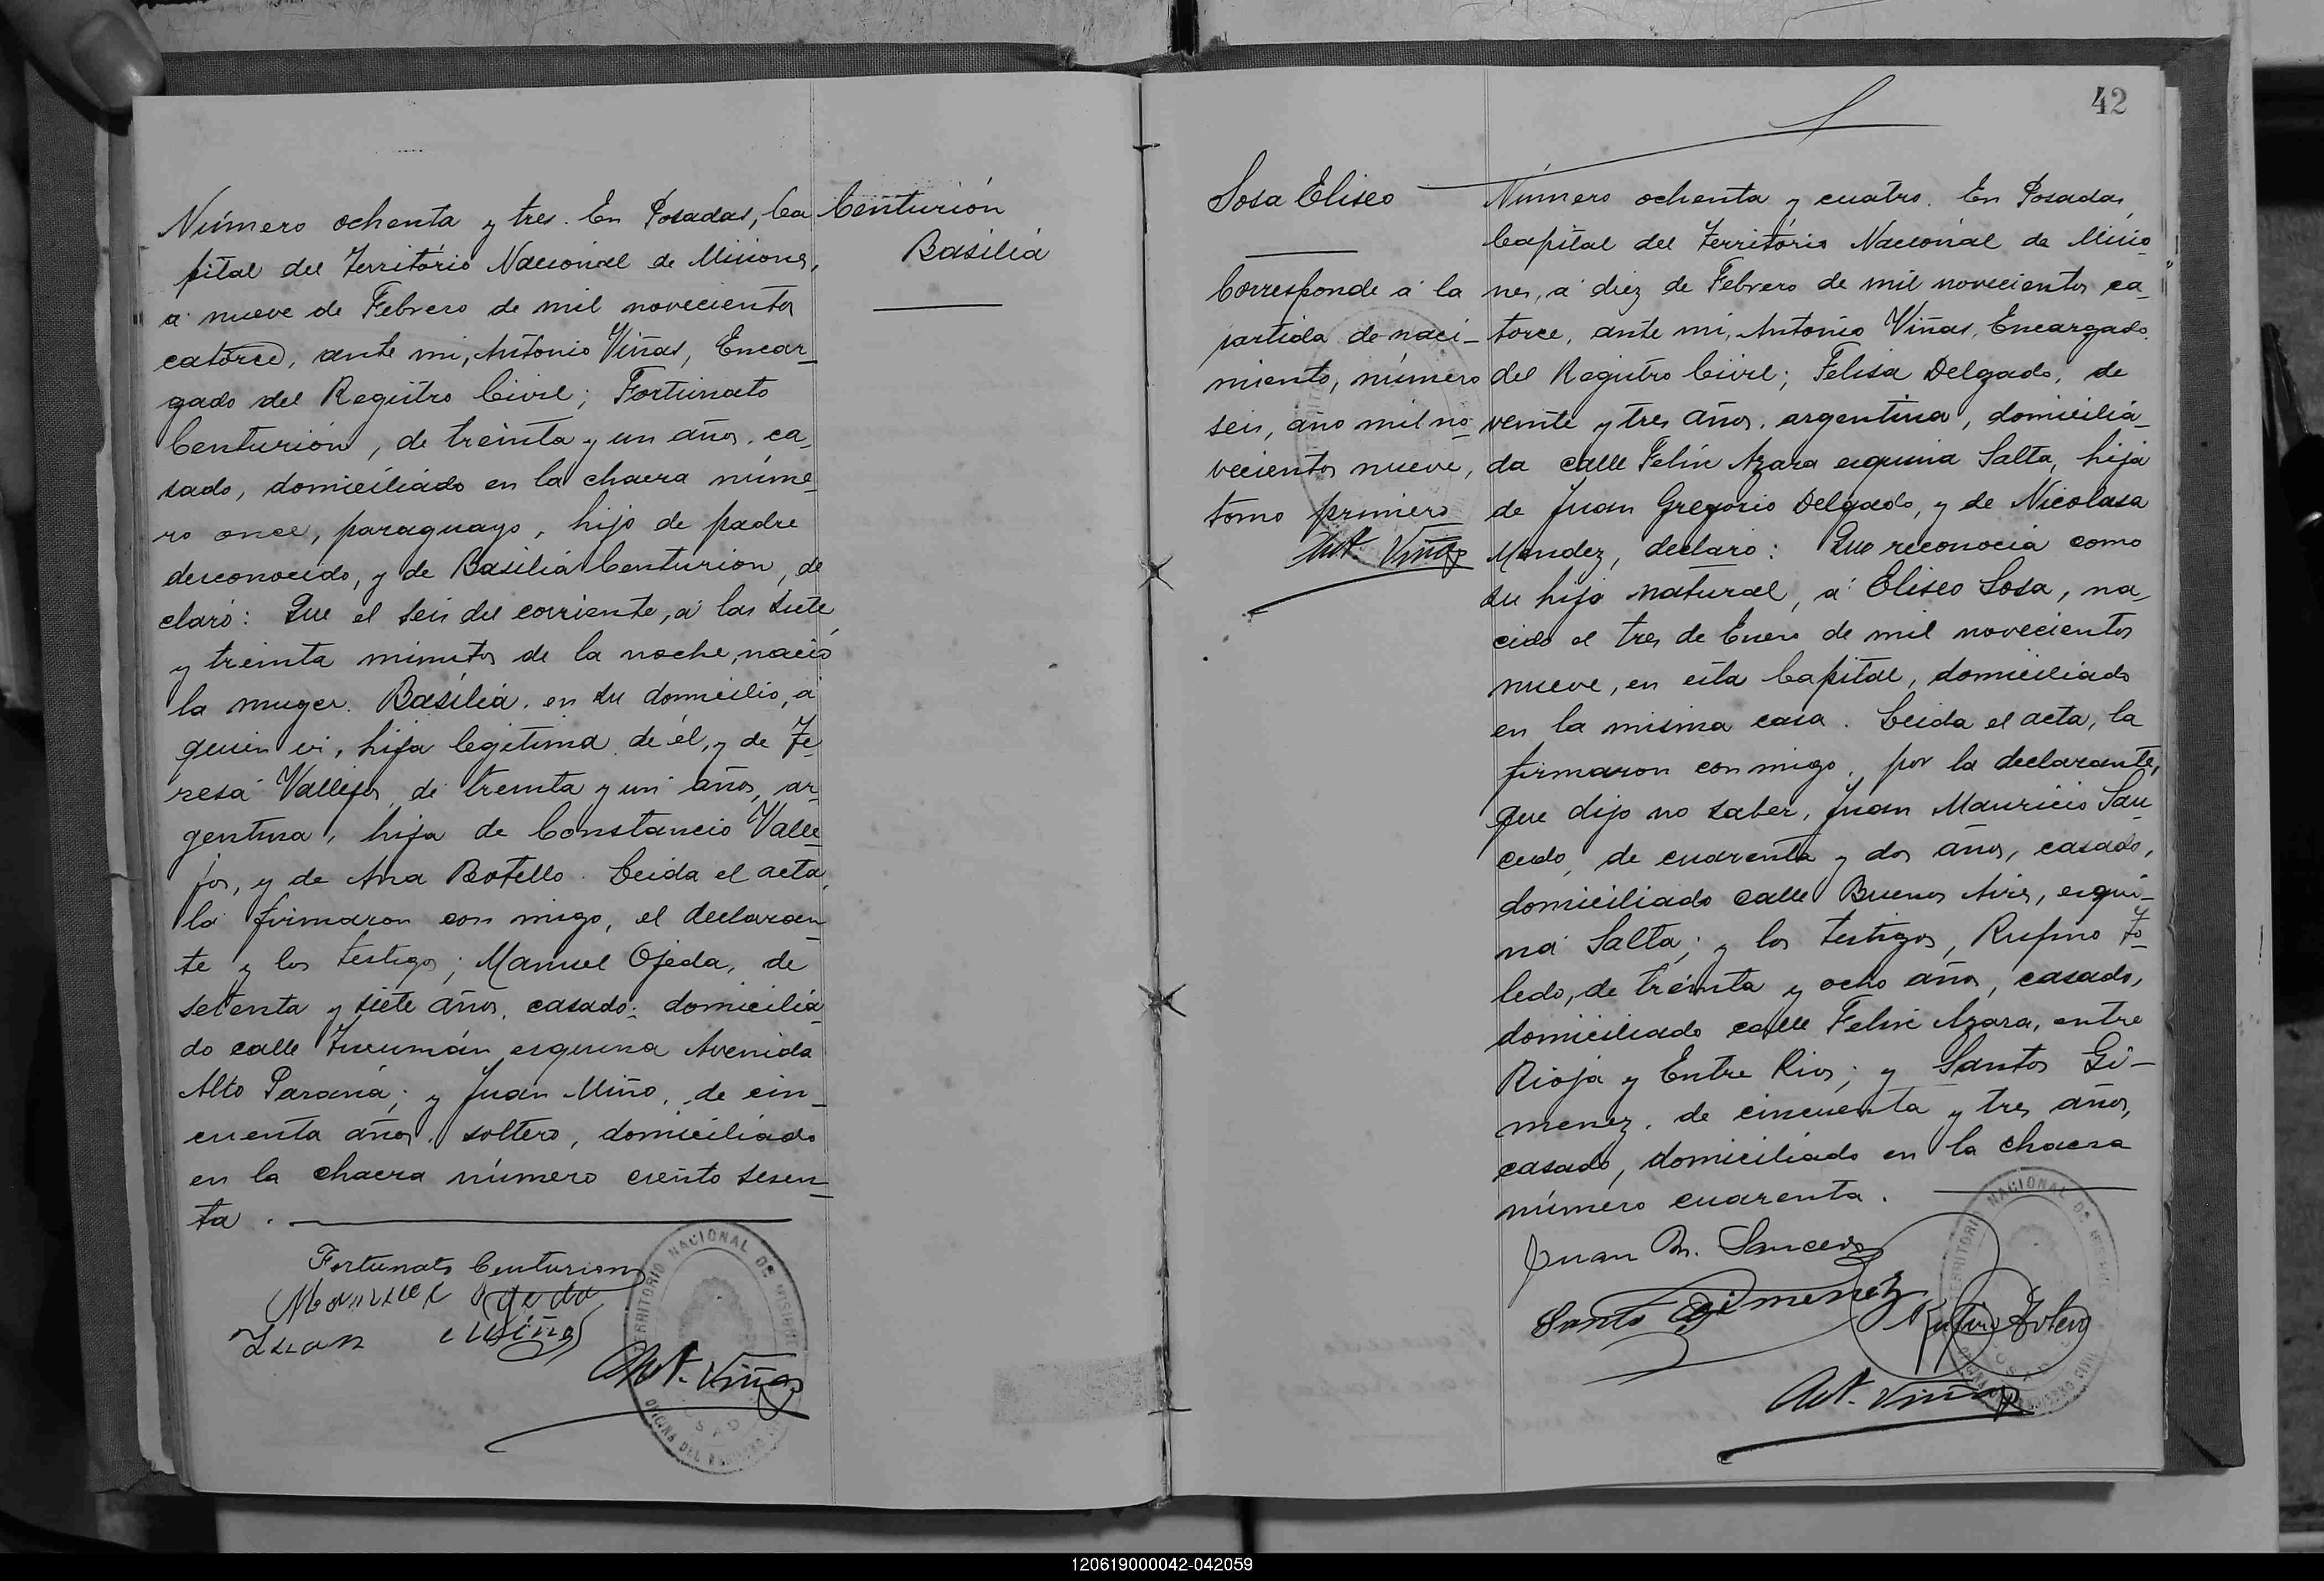 Número ochenta y tres. En Posadas, Ca
pital del Territorio Nacional de Misiones,
a nueve de Febrero de mil novecientos
catorce, ante mi, Antonio Viñas, Encar-
gado del Registro Civil; Fortunato
Centurión, de treinta y un años, ca-
sado, domiciliado en la chacra núme-
ro once, paraguayo, hijo de padre
desconocido, y de Basilia Centurion, de
claró: Que el seis del corriente, á las siete
y treinta minutos de la noche, nació
la muger Basilia, en su domicilio, a
quien vi, hija legitima de él, y de Te-
resa Vallejos, de treinta y un años, ar-
gentina, hija de Constancio Valle-
jos, y de Ana Botello. Leida el acta,
la firmaron con migo, el declaran-
te y los testigos; Manuel Ojeda, de
setenta y siete años, casado; domicilia-
do calle Tucumán esquina Avenida
Alto Paraná; y Juan Miño, de cin-
cuenta años, soltero, domiciliado
en la chacra número ciento sesen-
ta.
Fortunato Centurion
Manuel Ojeda
Juan Miño
Ant. Viñas
TERRITORIO NACIONAL DE MISIONES
OFICINA DEL REGISTRO CIVIL
POSADAS
Centurión
Basilia
42
Sosa Eliseo
Corresponde á la
partida de naci-
miento, número
seis, año mil no-
vecientos nueve,
tomo primero
Ant. Viñas
Número ochenta y cuatro. En Posadas,
Capital del Territorio Nacional de Misio-
nes, á diez de Febrero de mil novecientos ca-
torce, ante mi, Antonio Viñas, Encargado
del Registro Civil; Felisa Delgado, de
veinte y tres años, argentina, domicilia-
da calle Felix Azara esquina Salta, hija
de Juan Gregorio Delgado, y de Nicolasa
Mendez, declaro: Que reconocia como
su hijo natural, á Eliseo Sosa, na
cido el tres de Enero de mil novecientos
nueve, en esta Capital, domiciliado
en la misma casa. Leida el acta, la
firmaron con migo, por la declarante,
que dijo no saber, Juan Mauricio Sau
cedo, de cuarenta y dos años, casado,
domiciliado calle Buenos Aires, esqui-
na Salta; y los testigos, Rufino To-
ledo, de treinta y ocho años, casado,
domiciliado calle Felix Azara, entre
Rioja y Entre Rios; y Santos Gi-
menez, de cincuenta y tres años,
casado, domiciliado en la chacra
número cuarenta.
Juan M. Saucedo
Santo Gimenez
Rufino Toledo
Ant. Viñas
TERRITORIO NACIONAL DE MISIONES
120619000042-042059